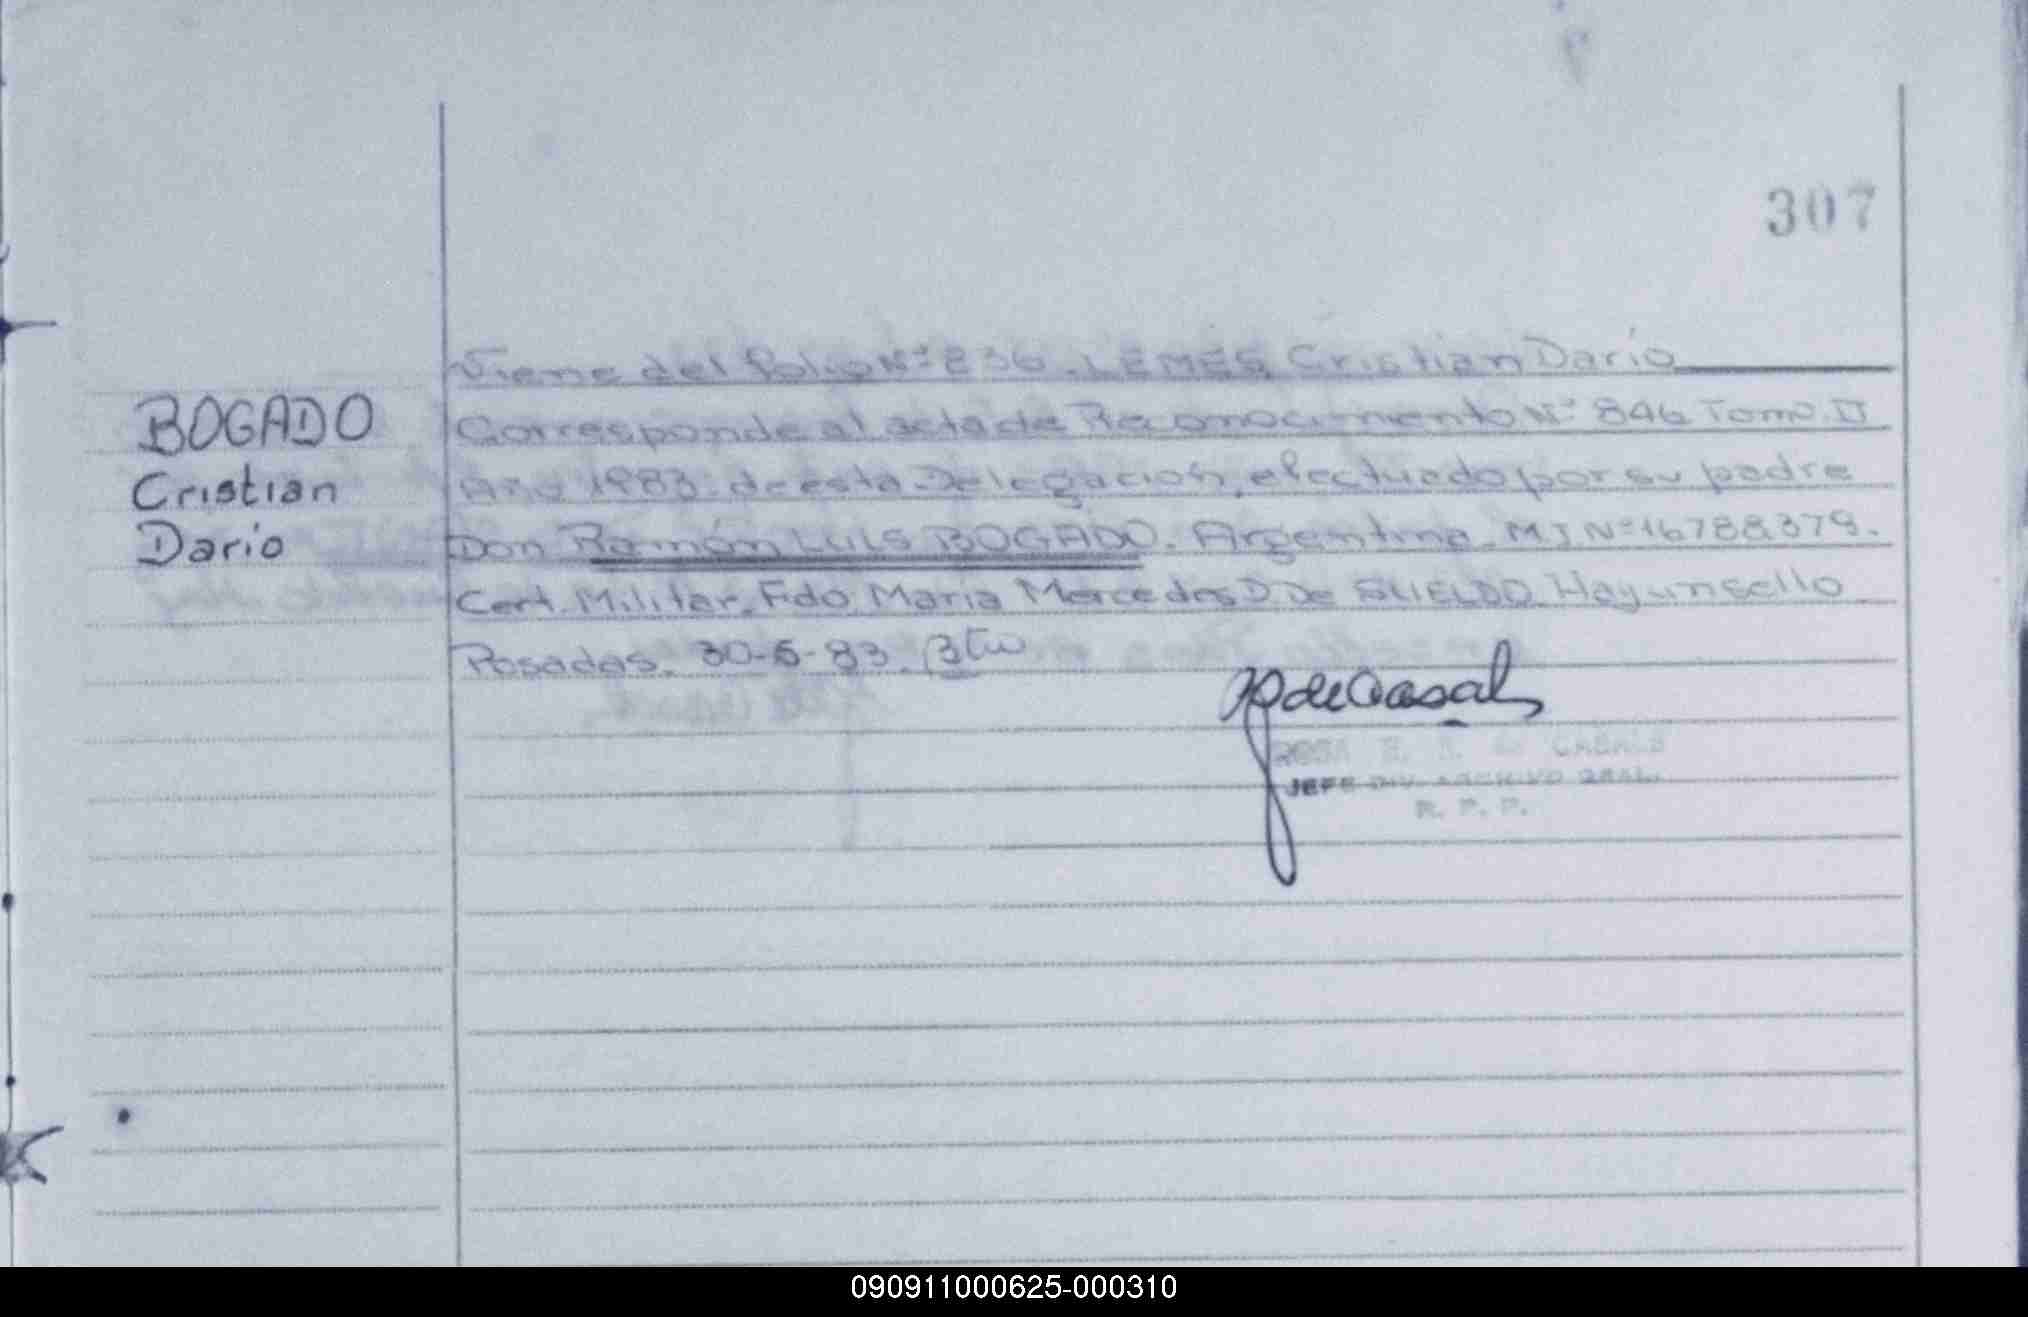 307
Viene del folio Nº 236. LEMES, Cristian Dario
BOGADO
Cristian
Dario
Corresponde al acta de Reconocimiento Nº 846 Tomo II
Año 1983. de esta Delegación, efectuado por su padre
Don Ramón LUIS BOGADO. Argentino. M I Nº 16788379.
Cert. Militar. Fdo. Maria Mercedes D. De SUELDO. Hay un sello
Posadas. 30-6-83.
JEFE DIV. ARCHIVO GRAL.
R. P. P.
090911000625-000310